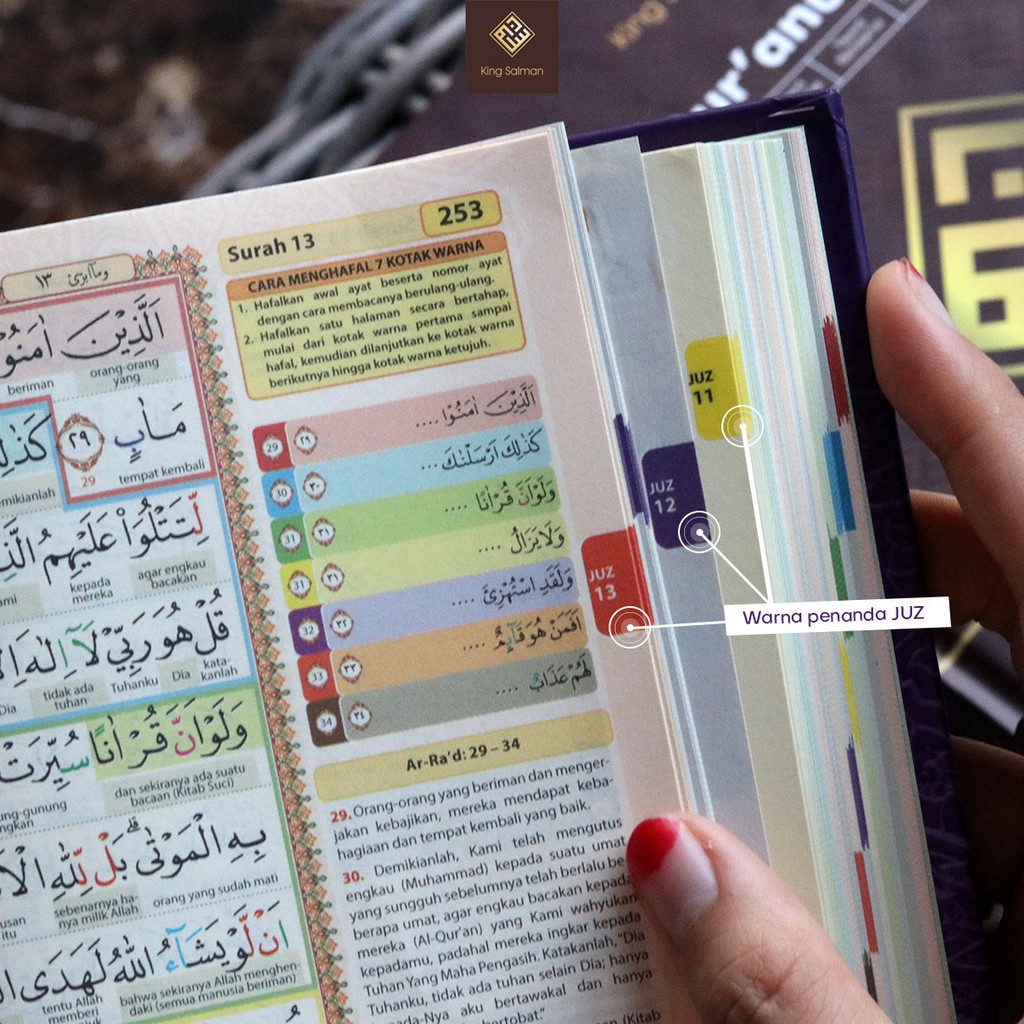 King Salman
ur'anu
Surah 13
253
CARA MENGHAFAL 7 KOTAK WARNA
1. Hafalkan awal ayat beserta nomor ayat
dengan cara membacanya berulang-ulang.
2. Hafalkan satu halaman secara bertahap,
mulai dari kotak warna pertama sampai
hafal, kemudian dilanjutkan ke kotak warna
berikutnya hingga kotak warna ketujuh.
29 ٢٩ اَلَّذِيْنَ اٰمَنُوْا ....
30 ٣٠ كَذٰلِكَ اَرْسَلْنٰكَ ...
31 ٣١ وَلَوْ اَنَّ قُرْاٰنًا ....
31 ٣١ وَلَا يَزَالُ ....
32 ٣٢ وَلَقَدِ اسْتُهْزِئَ ....
33 ٣٣ اَفَمَنْ هُوَ قَاۤىِٕمٌ ....
34 ٣٤ لَهُمْ عَذَابٌ ....
Ar-Ra'd: 29 – 34
29. Orang-orang yang beriman dan menger-
jakan kebajikan, mereka mendapat keba-
hagiaan dan tempat kembali yang baik.
30. Demikianlah, Kami telah mengutus
engkau (Muhammad) kepada suatu umat
yang sungguh sebelumnya telah berlalu be-
berapa umat, agar engkau bacakan kepada
mereka (Al-Qur'an) yang Kami wahyukan
kepadamu, padahal mereka ingkar kepada
Tuhan Yang Maha Pengasih. Katakanlah, "Dia
Tuhanku, tidak ada tuhan selain Dia; hanya
pada-Nya aku bertawakal dan hanya
bertobat."
(Kitab
وما ابرئ ١٣
اَلَّذِيْنَ اٰمَنُوْا
orang-orang yang
beriman
مَاٰبٍ ٢٩ كَذٰلِ
tempat kembali
29
emikianlah
لِّتَتْلُوَا۟ عَلَيْهِمُ الَّذِ
agar engkau bacakan
kepada mereka
قُلْ هُوَ رَبِّيْ لَآ اِلٰهَ اِ
kata-kanlah
Dia
Tuhanku
tidak ada tuhan
Dia
وَلَوْ اَنَّ قُرْاٰنًا سُيِّرَتْ
dan sekiranya ada suatu bacaan (Kitab Suci)
ung-gunung
بِهِ الْمَوْتٰى ۗ بَلْ لِّلّٰهِ الْاَ
orang yang sudah mati
sebenarnya ha-nya milik Allah
اَنْ لَّوْ يَشَاۤءُ اللّٰهُ لَهَدَى
bahwa sekiranya Allah menghen-daki (semua manusia beriman)
tentu Allah memberi
JUZ 11
JUZ 12
JUZ 13
Warna penanda JUZ